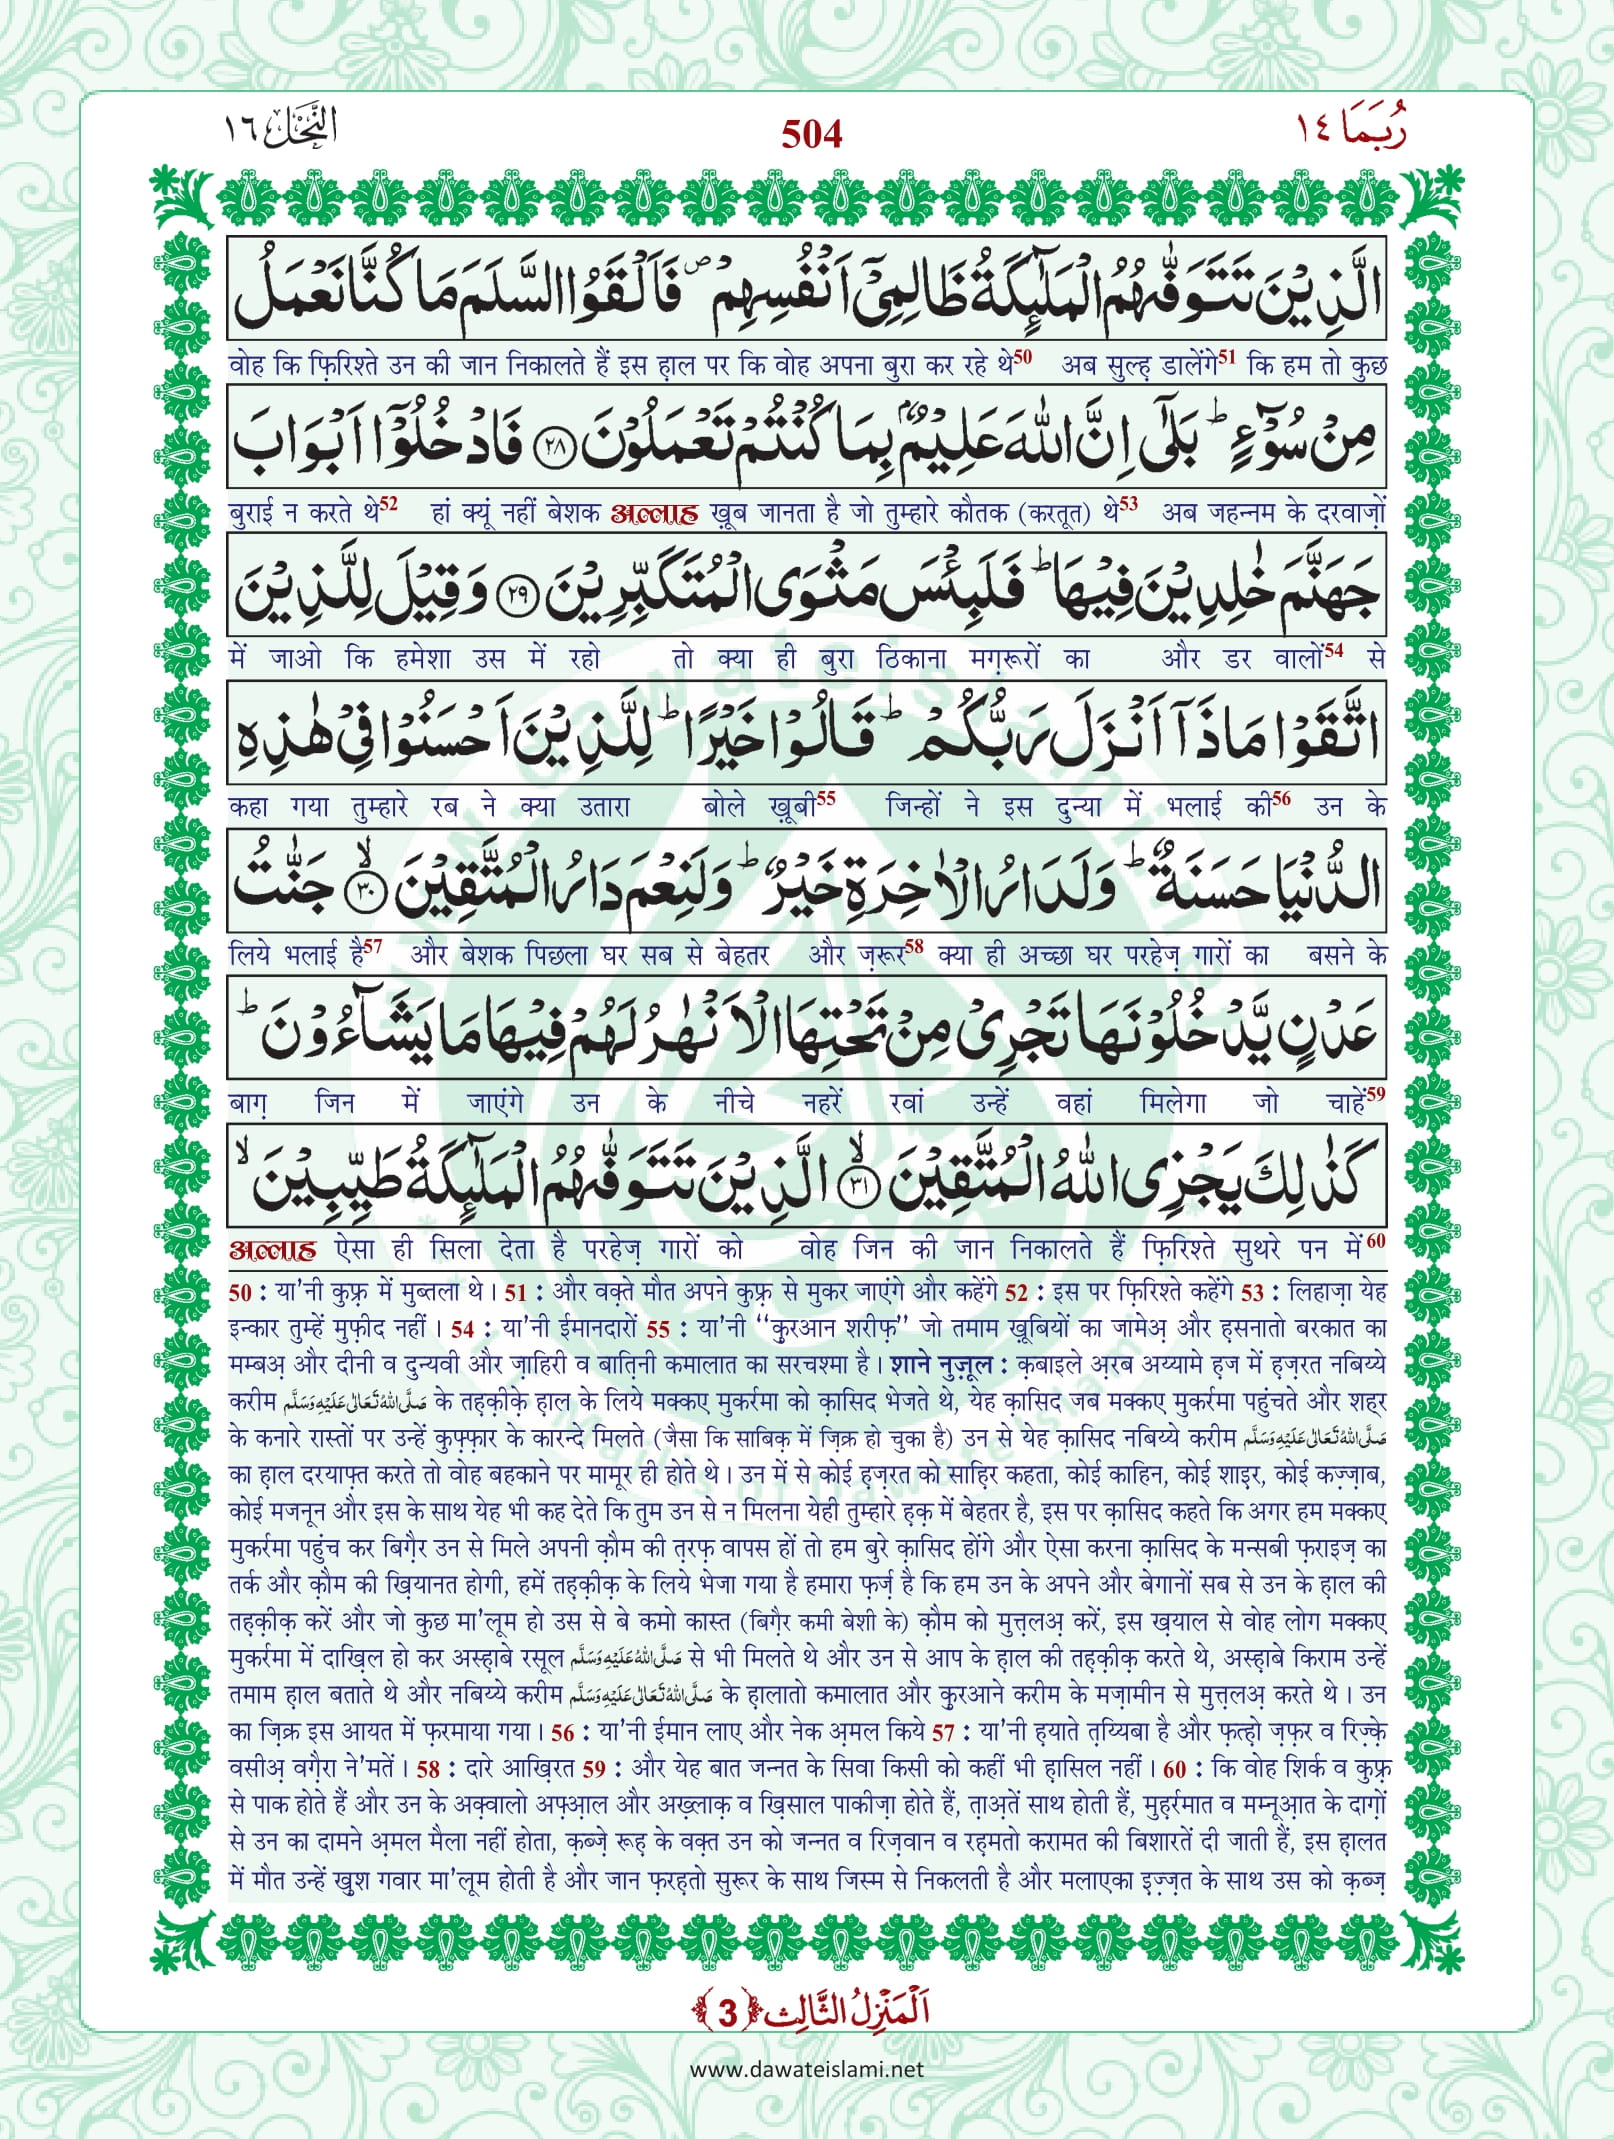 رُبَمَا ١٤
504
النَّحْل ١٦
الَّذِيْنَ تَتَوَفّٰىهُمُ الْمَلٰٓىِٕكَةُ ظَالِمِيْۤ اَنْفُسِهِمْ۪ فَاَلْقَوُا السَّلَمَ مَا كُنَّا نَعْمَلُ
वोह कि फ़िरिश्ते उन की जान निकालते हैं इस ह़ाल पर कि वोह अपना बुरा कर रहे थे50 अब सुल्ह़ डालेंगे51 कि हम तो कुछ
مِنْ سُوْٓءٍؕ بَلٰۤى اِنَّ اللّٰهَ عَلِیْمٌۢ بِمَا كُنْتُمْ تَعْمَلُوْنَ ۝۲۸ فَادْخُلُوْۤا اَبْوَابَ
बुराई न करते थे52 हां क्यूं नहीं बेशक अल्लाह ख़ूब जानता है जो तुम्हारे कौतक (करतूत) थे53 अब जहन्नम के दरवाज़ों
جَهَنَّمَ خٰلِدِیْنَ فِیْهَاؕ فَلَبِئْسَ مَثْوَى الْمُتَكَبِّرِیْنَ ۝۲۹ وَقِیْلَ لِلَّذِیْنَ
में जाओ कि हमेशा उस में रहो तो क्या ही बुरा ठिकाना मग़रूरों का और डर वालों54 से
اتَّقَوْا مَاذَاۤ اَنْزَلَ رَبُّكُمْؕ قَالُوْا خَیْرًاؕ لِلَّذِیْنَ اَحْسَنُوْا فِیْ هٰذِهِ
कहा गया तुम्हारे रब ने क्या उतारा बोले ख़ूबी55 जिन्हों ने इस दुन्या में भलाई की56 उन के
الدُّنْیَا حَسَنَةٌؕ وَلَدَارُ الْاٰخِرَةِ خَیْرٌؕ وَلَنِعْمَ دَارُ الْمُتَّقِیْنَ ۝۳۰ۙ جَنّٰتُ
लिये भलाई है57 और बेशक पिछला घर सब से बेहतर और ज़रूर58 क्या ही अच्छा घर परहेज़ गारों का बसने के
عَدْنٍ یَّدْخُلُوْنَهَا تَجْرِیْ مِنْ تَحْتِهَا الْاَنْهٰرُ لَهُمْ فِیْهَا مَا یَشَآءُوْنَؕ
बाग़ जिन में जाएंगे उन के नीचे नहरें रवां उन्हें वहां मिलेगा जो चाहें59
كَذٰلِكَ یَجْزِی اللّٰهُ الْمُتَّقِیْنَ ۝۳۱ۙ الَّذِیْنَ تَتَوَفّٰىهُمُ الْمَلٰٓىِٕكَةُ طَیِّبِیْنَۙ
अल्लाह ऐसा ही सिला देता है परहेज़ गारों को वोह जिन की जान निकालते हैं फ़िरिश्ते सुथरे पन में60
50 : या'नी कुफ़्र में मुब्तला थे। 51 : और वक़्ते मौत अपने कुफ़्र से मुकर जाएंगे और कहेंगे 52 : इस पर फ़िरिश्ते कहेंगे 53 : लिहाज़ा येह
इन्कार तुम्हें मुफ़ीद नहीं। 54 : या'नी ईमानदारों 55 : या'नी ‘‘क़ुरआन शरीफ़’’ जो तमाम ख़ूबियों का जामेअ़ और ह़सनातो बरकात का
मम्बअ़ और दीनी व दुन्यवी और ज़ाहिरी व बात़िनी कमालात का सरचश्मा है। शाने नुज़ूल : क़बाइले अ़रब अय्यामे ह़ज में ह़ज़रत नबिय्ये
करीम صَلَّى اللهُ تَعَالٰى عَلَيْهِ وَسَلَّم के तह़क़ीक़े ह़ाल के लिये मक्कए मुकर्रमा को क़ासिद भेजते थे, येह क़ासिद जब मक्कए मुकर्रमा पहुंचते और शहर
के कनारे रास्तों पर उन्हें कुफ़्फ़ार के कारन्दे मिलते (जैसा कि साबिक़ में ज़िक्र हो चुका है) उन से येह क़ासिद नबिय्ये करीम صَلَّى اللهُ تَعَالٰى عَلَيْهِ وَسَلَّم
का ह़ाल दरयाफ़्त करते तो वोह बहकाने पर मामूर ही होते थे। उन में से कोई ह़ज़रत को साह़िर कहता, कोई काहिन, कोई शाइर, कोई कज़्ज़ाब,
कोई मजनून और इस के साथ येह भी कह देते कि तुम उन से न मिलना येही तुम्हारे ह़क़ में बेहतर है, इस पर क़ासिद कहते कि अगर हम मक्कए
मुकर्रमा पहुंच कर बिग़ैर उन से मिले अपनी क़ौम की त़रफ़ वापस हों तो हम बुरे क़ासिद होंगे और ऐसा करना क़ासिद के मन्सबी फ़राइज़ का
तर्क और क़ौम की ख़ियानत होगी, हमें तह़क़ीक़ के लिये भेजा गया है हमारा फ़र्ज़ है कि हम उन के अपने और बेगानों सब से उन के ह़ाल की
तह़क़ीक़ करें और जो कुछ मा'लूम हो उस से बे कमो कास्त (बिग़ैर कमी बेशी के) क़ौम को मुत्त़लअ़ करें, इस ख़याल से वोह लोग मक्कए
मुकर्रमा में दाख़िल हो कर अस्ह़ाबे रसूल صَلَّى اللهُ عَلَيْهِ وَسَلَّم से भी मिलते थे और उन से आप के ह़ाल की तह़क़ीक़ करते थे, अस्ह़ाबे किराम उन्हें
तमाम ह़ाल बताते थे और नबिय्ये करीम صَلَّى اللهُ تَعَالٰى عَلَيْهِ وَسَلَّم के ह़ालातो कमालात और क़ुरआने करीम के मज़ामीन से मुत्त़लअ़ करते थे। उन
का ज़िक्र इस आयत में फ़रमाया गया। 56 : या'नी ईमान लाए और नेक अ़मल किये 57 : या'नी ह़याते त़य्यिबा है और फ़त्ह़ो ज़फ़र व रिज़्क़े
वसीअ़ वग़ैरा ने'मतें। 58 : दारे आख़िरत 59 : और येह बात जन्नत के सिवा किसी को कहीं भी ह़ासिल नहीं। 60 : कि वोह शिर्क व कुफ़्र
से पाक होते हैं और उन के अक़्वालो अफ़्आ़ल और अख़्लाक़ व ख़िसाल पाकीज़ा होते हैं, त़ाअ़तें साथ होती हैं, मुह़र्रमात व मम्नूआ़त के दाग़ों
से उन का दामने अ़मल मैला नहीं होता, क़ब्ज़े रूह़ के वक़्त उन को जन्नत व रिज़वान व रह़मतो करामत की बिशारतें दी जाती हैं, इस ह़ालत
में मौत उन्हें ख़ुश गवार मा'लूम होती है और जान फ़रह़तो सुरूर के साथ जिस्म से निकलती है और मलाएका इज़्ज़त के साथ उस को क़ब्ज़
اَلْمَنْزِلُ الثَّالِث ﴿3﴾
www.dawateislami.net